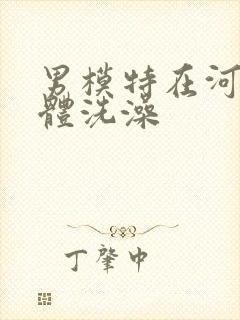 男模特在河
體洗澡
丁肇中